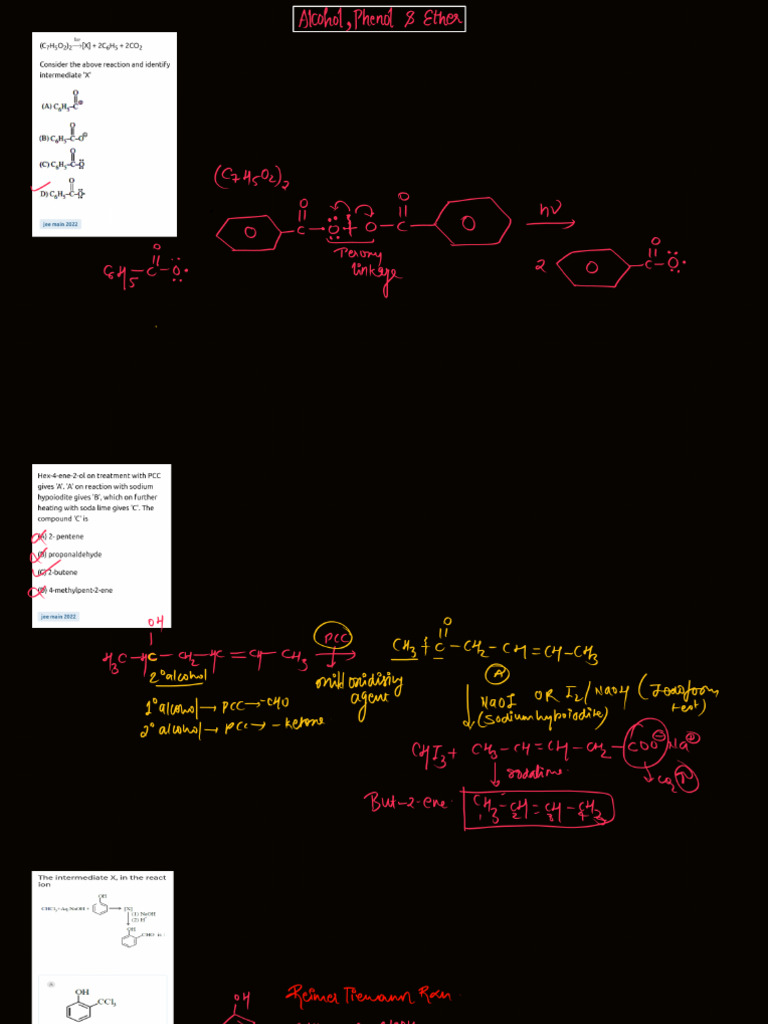 Alcohol, Phenol & Ether
(C₇H₅O₂)₂ ⟶ [X] + 2C₆H₅ + 2CO₂
Consider the above reaction and identify
intermediate 'X'
(A) C₆H₅–C
O
(B) C₆H₅–C–O
O
(C) C₆H₅–C–O
O
D) C₆H₅–C–O
jee main 2022
(C₇H₅O₂)₂
O
C–O–O–C
O
Peroxy
linkage
hν
2
O
C–O·
O
C₆H₅–C–O·
Hex-4-ene-2-ol on treatment with PCC
gives 'A'. 'A' on reaction with sodium
hypoiodite gives 'B', which on further
heating with soda lime gives 'C'. The
compound 'C' is
(A) 2- pentene
(B) proponaldehyde
(C) 2-butene
(D) 4-methylpent-2-ene
jee main 2022
OH
H₃C–HC–CH₂–HC=CH–CH₃
2° alcohol
PCC
mild oxidising
agent
O
CH₃–C–CH₂–CH=CH–CH₃
A
1° alcohol → PCC → –CHO
2° alcohol → PCC → – ketone
NaOI OR I₂/NaOH (Iodoform
test)
(Sodium hypoiodite)
CHI₃ + CH₃–CH=CH–CH₂–COO⁻Na⁺
sodalime
CO₂↑
But-2-ene
CH₃–CH=CH–CH₃
1 2 3 4
The intermediate X, in the react
ion
OH
CHCl₃ + Aq NaOH + ⟶ [X]
(1) NaOH
(2) H⁺
OH
CHO
OH
CCl₃
OH
Reimer Tiemann Rxn.